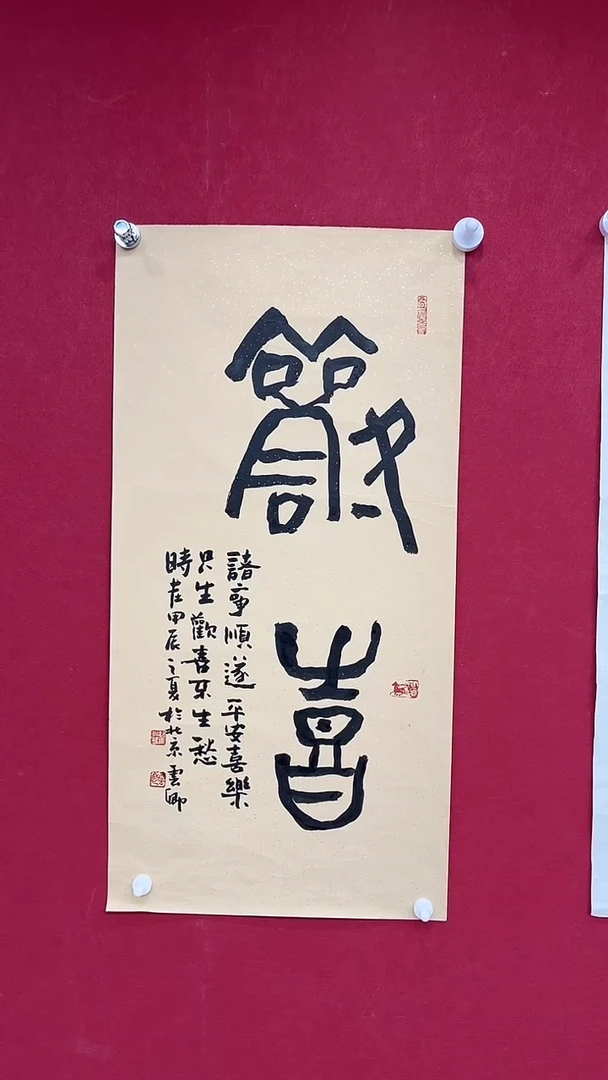 歡喜
諸事順遂平安喜樂
只生歡喜不生愁
時在甲辰之夏於北京雲卿